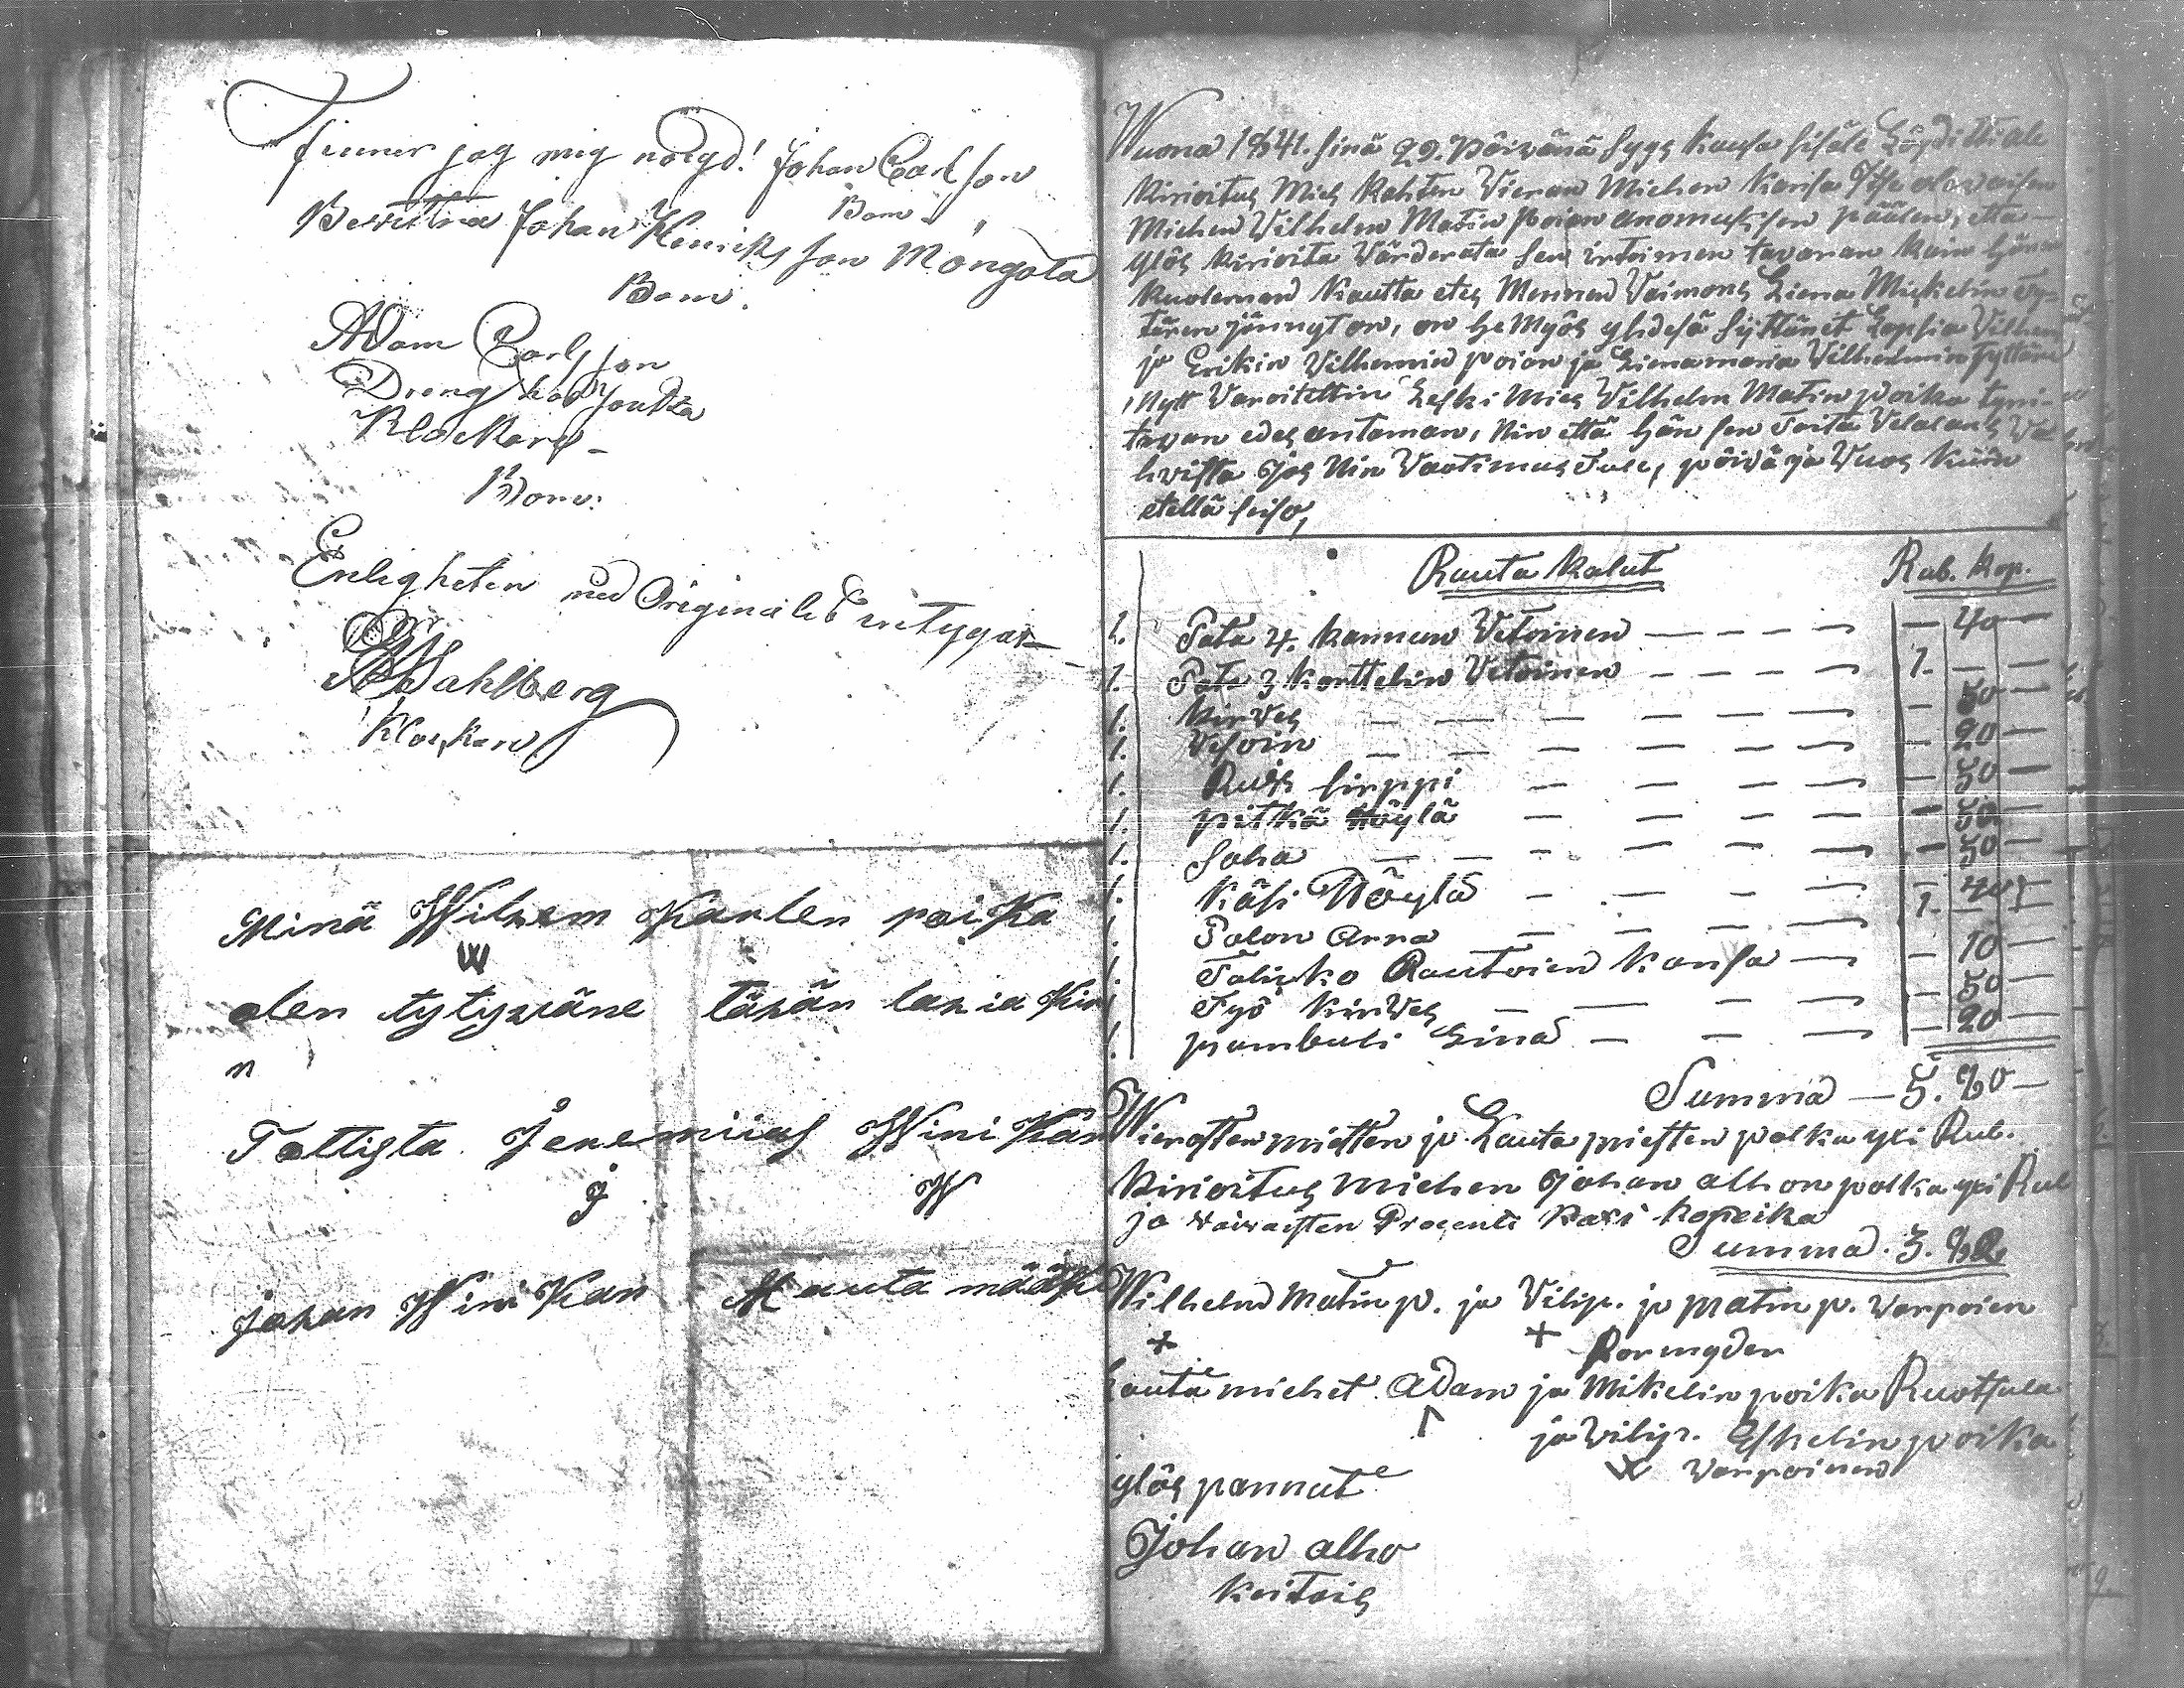 finner jag mig nöigd! Johan Carlsson
Bom
Bevittna Johan Henriksson Mongola
Bom.
Adam Carlsson
Dreng
Klockars
Bom.
Enligheten med Originalet intygar
Wahlberg
Klockare
Minä Wilhem Karlen poika
W
olen tytywäne tähän lahia Kin
n
Tottista Jeremias Wini Kan
J W
johan Wini Kan Mauta määki
Wuona 1841. sinä 29. päivänä Syys kuusa
Kirioitus Mies Kahten Vieran Miehen Kansa
Miehen Vilhelm Matin Poian anomuksen päälen, että
ylös Kirioita Värderata sen irtoimen tavaran kuin hänen
Kuoleman Kautta edes Mennen Vaimons Liena Mickelin Ty-
tären jäänyt on, on he Myös yhdesä Syttänet Lapsia Vilhem
ja Erikin Vilhemin poian ja Lienamaria Vilhelmin Tyttären
, Nytt Varoitettin Leski Mies Vilhelm Matin poika
tavan edes antaman, Nin että hän sen Taita Valalans Va-
hvista Jos Nin Vaatimus Tule, päivä ja Vuos Kuin
etellä seiso,
Rauta Kalut Rub. Kop.
1. Pata 4. kannun Vetoinen — 40 —
1. Pata 3 korttelin Vetoinen 1. — —
1. Kirves — 50 —
1. Vesoin — 20 —
1. Ruis sirppi — 50 —
1. pitkä Höylä — 50
1. Saha — 50 —
1. Käsi Höylä — 40
1. Polon Arra 1. — —
1. Talikko Rautoien Kansa — 10 —
1. Työ Kirves — 50 —
1. pumbuli Liina — 20 —
Summa — 5. 80 —
Vierasten miesten ja Lauta miesten palka yxi Rub.
Kirioitus Miehen Johan alhon palka yxi Rub
ja vaivaisten Procenti Kaxi Kopeika
Summa. 3. 82
Wilhelm Matin p. ja Vilip. ja Matin p. Varpoien
+ +
Formyder
Lauta miehet Adam ja Mikelin poika Ruotsala
ja Vilip. Eskelin poika
Varpoinen
ylös pannut
Johan alho